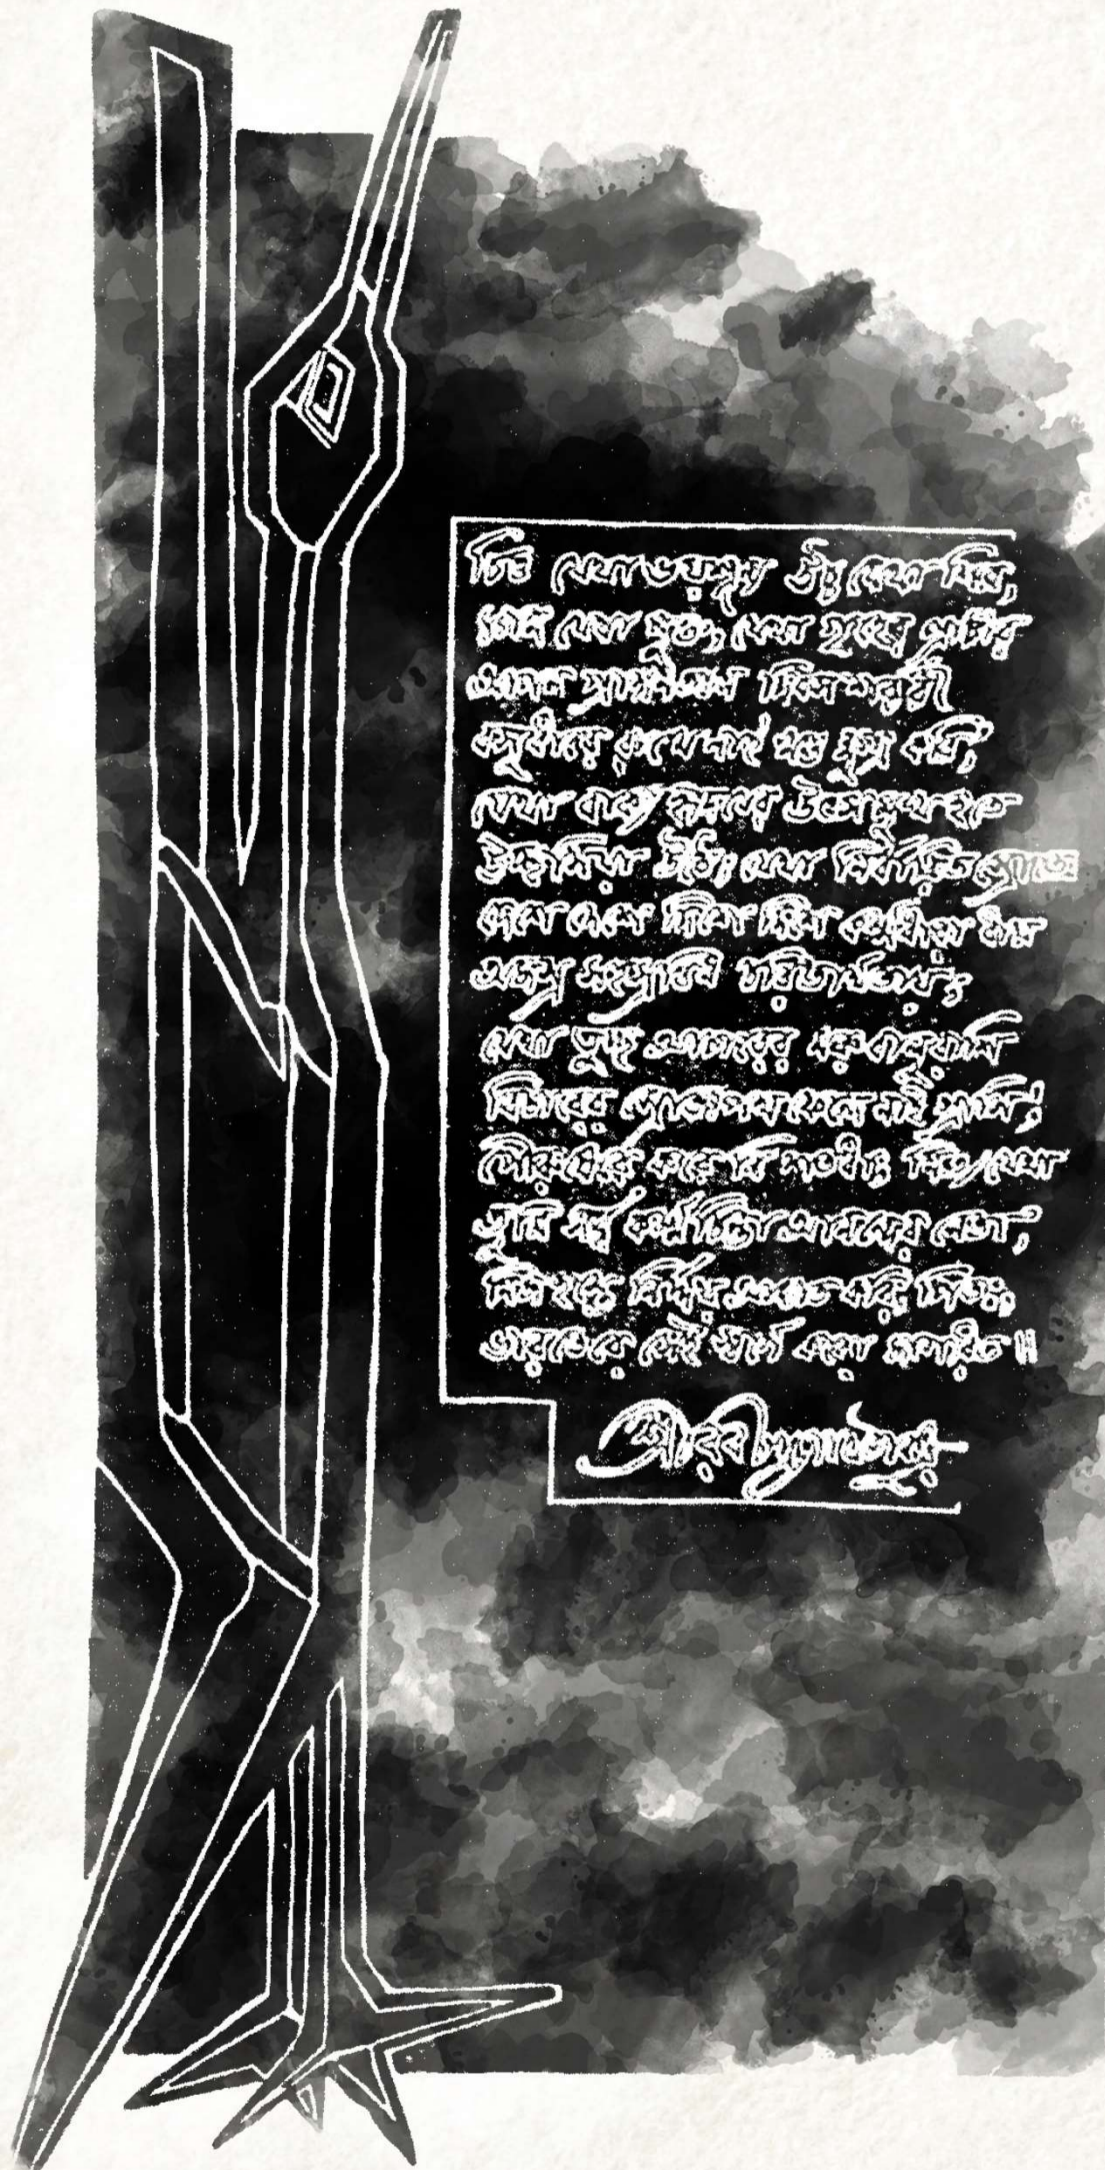 চিত্ত যেথা ভয়শূন্য উচ্চ যেথা শির,
জ্ঞান যেথা মুক্ত, যেথা গৃহের প্রাচীর
আপন প্রাঙ্গণতলে দিবসশর্বরী
বসুধারে রাখে নাই খণ্ড ক্ষুদ্র করি,
যেথা বাক্য হৃদয়ের উৎসমুখ হতে
উচ্ছ্বসিয়া উঠে, যেথা নির্বারিত স্রোতে
দেশে দেশে দিশে দিশে কর্মধারা ধায়
অজস্র সহস্রবিধ চরিতার্থতায়,
যেথা তুচ্ছ আচারের মরুবালুরাশি
বিচারের স্রোতঃপথ ফেলে নাই গ্রাসি,
পৌরুষেরে করেনি শতধা; নিত্য যেথা
তুমি সর্ব কর্ম চিন্তা আনন্দের নেতা,
নিজ হস্তে নির্দয় আঘাত করি, পিতঃ,
ভারতেরে সেই স্বর্গে করো জাগরিত॥
শ্রীরবীন্দ্রনাথ ঠাকুর